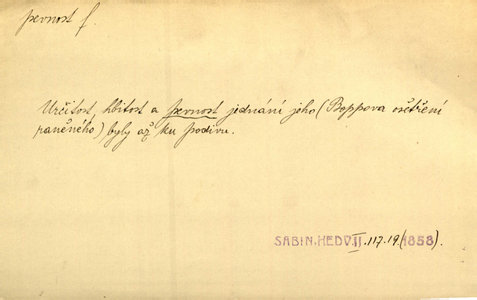 pevnost f.
Určitost, hbitost a pevnost jednání jeho (Boppova ošetření
raněného) byly až ku podivu.
SABIN. HEDV. II. 117.19 (1858).